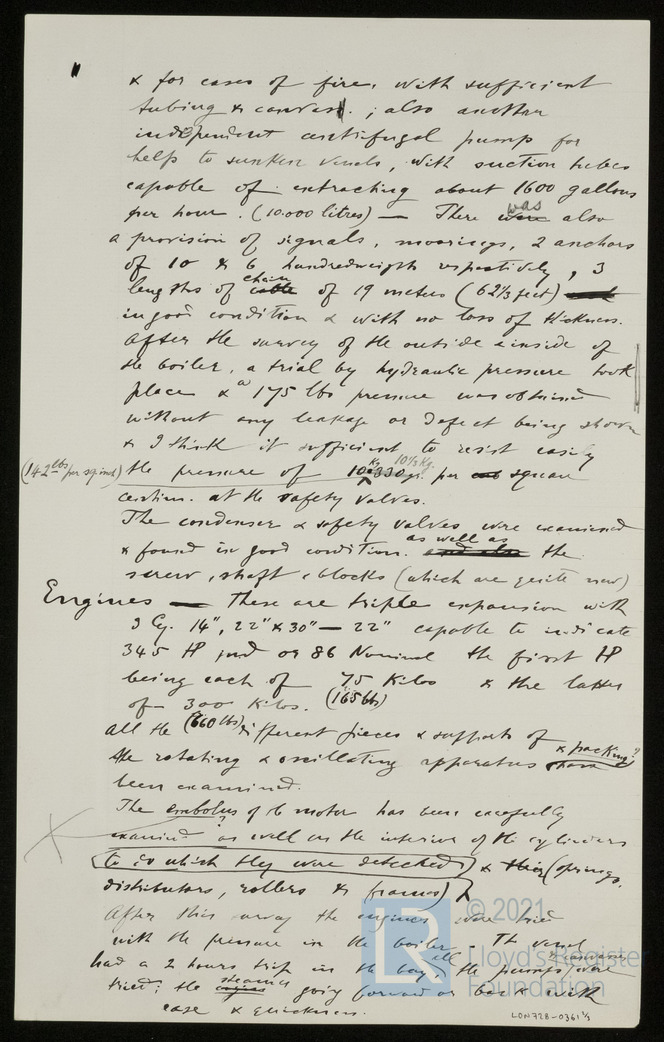 & for cases of fire, with sufficient
tubing & canvas. ; also another
independent centrifugal pump for
help to sunken vessels, with suction tubes
capable of extracting about 1600 gallons
per hour. (10.000 litres) — There were was also
a provision of signals, moorings, 2 anchors
of 10 & 6 hundredweight respectively, 3
lengths of cable chain of 19 metres (62 1/3 feet)
in good condition & with no loss of thickness.
After the survey of the outside & inside of
the boiler, a trial by hydraulic pressure took
place & a 175 lbs pressure was obtained
without any leakage or defect being shown
& I think it sufficient to resist easily
(142 lbs per sq inch) the pressure of 10 Ks 330 gr. 10 1/3 Kg. per square
centim. at the safety valves.
The condenser & safety valves were examined
& found in good condition. and also as well as the
screw, shaft & blocks (which are quite new)
Engines — These are triple expansion with
3 Cy. 14", 22" & 30" — 22" capable to indicate
345 HP ind or 86 Nominal the first HP
being each of 75 Kilos (165 lbs) & the latter
of 300 Kilos. (660 lbs)
All the different pieces & supports of
the rotating & oscillating apparatus have & packing?
been examined.
The embolus of motor has been carefully
examined as well as the interior of the cylinders
(to do which they were detached) & their (springs,
distributors, rollers & frames)
After this survey the engines were tried
with the pressure in the boiler - The vessel
had a 2 hours trip in the bay, all the pumps were
tried; the engines steamer going forward or back with
ease & quickness.
LON728-0361 1/3
© 2021
LR
Lloyd's Register
Foundation